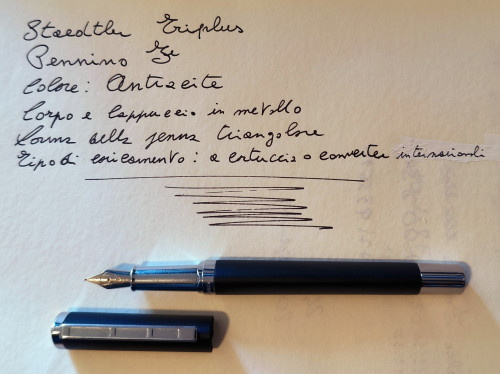 Staedtler Triplus
Pennino
Colore: Antracite
Corpo e cappuccio in metallo
Forma della penna triangolare
Tipo di caricamento: a cartuccia o converter internazionali